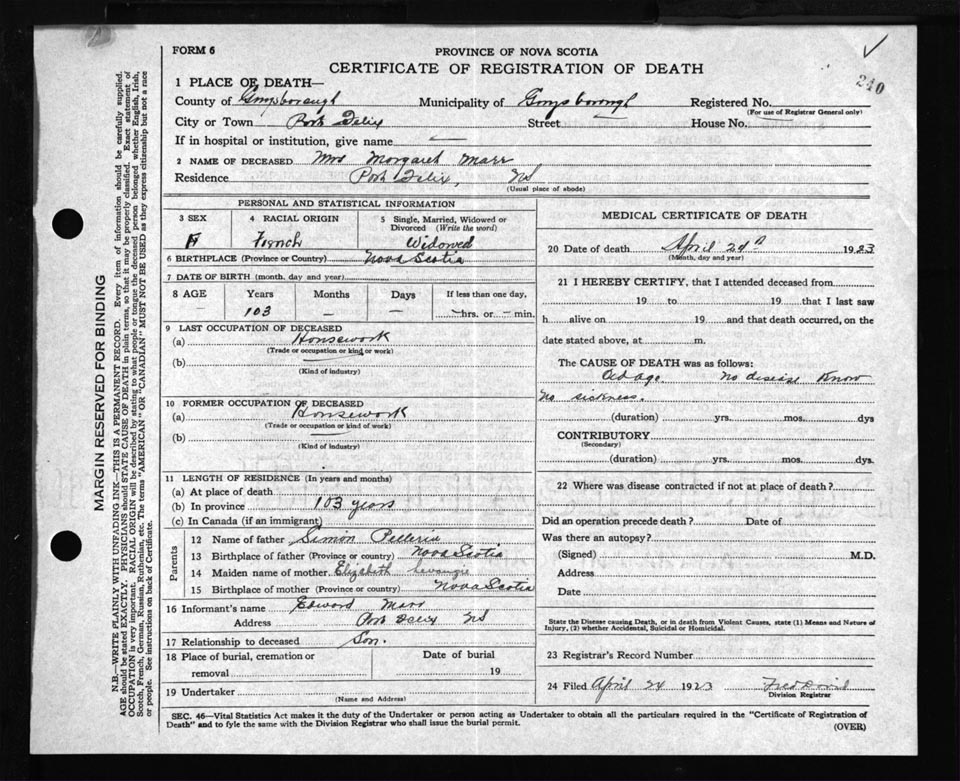 FORM 6
PROVINCE OF NOVA SCOTIA
CERTIFICATE OF REGISTRATION OF DEATH
240
1 PLACE OF DEATH—
County of Guysborough Municipality of Guysborough Registered No.
(For use of Registrar General only)
City or Town Port Felix Street House No.
If in hospital or institution, give name —
2 NAME OF DECEASED Mrs Margaret Marr
Residence Port Felix, NS
(Usual place of abode)
PERSONAL AND STATISTICAL INFORMATION
3 SEX
F
4 RACIAL ORIGIN
French
5 Single, Married, Widowed or Divorced (Write the word)
Widowed
6 BIRTHPLACE (Province or Country) Nova Scotia
7 DATE OF BIRTH (month, day and year)
8 AGE Years Months Days If less than one day,
— 103 — — — hrs. or — min.
9 LAST OCCUPATION OF DECEASED
(a) Housework
(Trade or occupation or kind or work)
(b)
(Kind of industry)
10 FORMER OCCUPATION OF DECEASED
(a) Housework
(Trade or occupation or kind of work)
(b)
(Kind of industry)
11 LENGTH OF RESIDENCE (In years and months)
(a) At place of death
(b) In province 103 years
(c) In Canada (if an immigrant)
Parents
12 Name of father Simon Pellerin
13 Birthplace of father (Province or country) Nova Scotia
14 Maiden name of mother Elizabeth
15 Birthplace of mother (Province or country) Nova Scotia
16 Informant's name Edward Marr
Address Port Felix NS
17 Relationship to deceased Son.
18 Place of burial, cremation or removal
Date of burial
19
19 Undertaker
(Name and Address)
MEDICAL CERTIFICATE OF DEATH
20 Date of death April 24th 1923
(Month, day and year)
21 I HEREBY CERTIFY, that I attended deceased from
19 to 19 that I last saw
h alive on 19 and that death occurred, on the
date stated above, at m.
The CAUSE OF DEATH was as follows:
Old age. No disease Know
No sickness.
(duration) yrs. mos. dys
CONTRIBUTORY
(Secondary)
(duration) yrs. mos. dys.
22 Where was disease contracted if not at place of death?
Did an operation precede death? Date of
Was there an autopsy?
(Signed) M.D.
Address
Date
State the Disease causing Death, or in death from Violent Causes, state (1) Means and Nature of
Injury, (2) whether Accidental, Suicidal or Homicidal.
23 Registrar's Record Number
24 Filed April 24 1923
Division Registrar
SEC. 46—Vital Statistics Act makes it the duty of the Undertaker or person acting as Undertaker to obtain all the particulars required in the "Certificate of Registration of
Death" and to fyle the same with the Division Registrar who shall issue the burial permit.
(OVER)
MARGIN RESERVED FOR BINDING
N.B.—WRITE PLAINLY WITH UNFADING INK—THIS IS A PERMANENT RECORD. Every item of information should be carefully supplied.
AGE should be stated EXACTLY. PHYSICIANS should STATE CAUSE OF DEATH in plain terms, so that it may be properly classified. Exact statement of
OCCUPATION is very important. RACIAL ORIGIN will be described by stating to what people or tongue the deceased person belonged whether English, Irish,
Scotch, French, German, Russian, Ruthenian, etc. The terms "AMERICAN" OR "CANADIAN" MUST NOT BE USED as they express citizenship but not a race
or people. See instructions on back of Certificate.